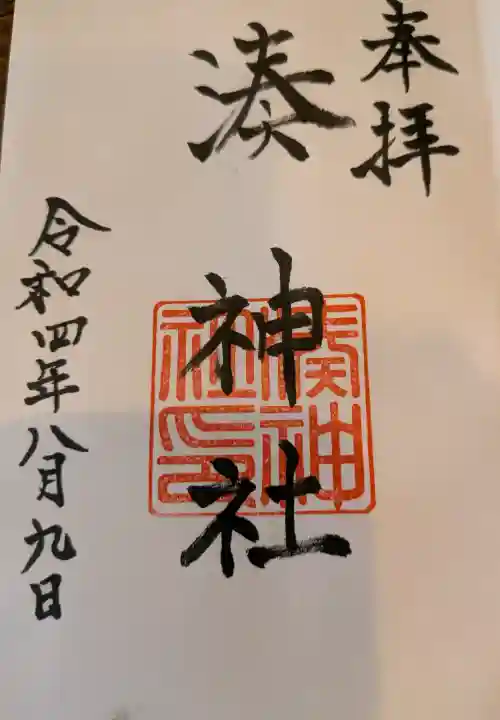 奉拝
湊神社
神社印
令和四年八月九日